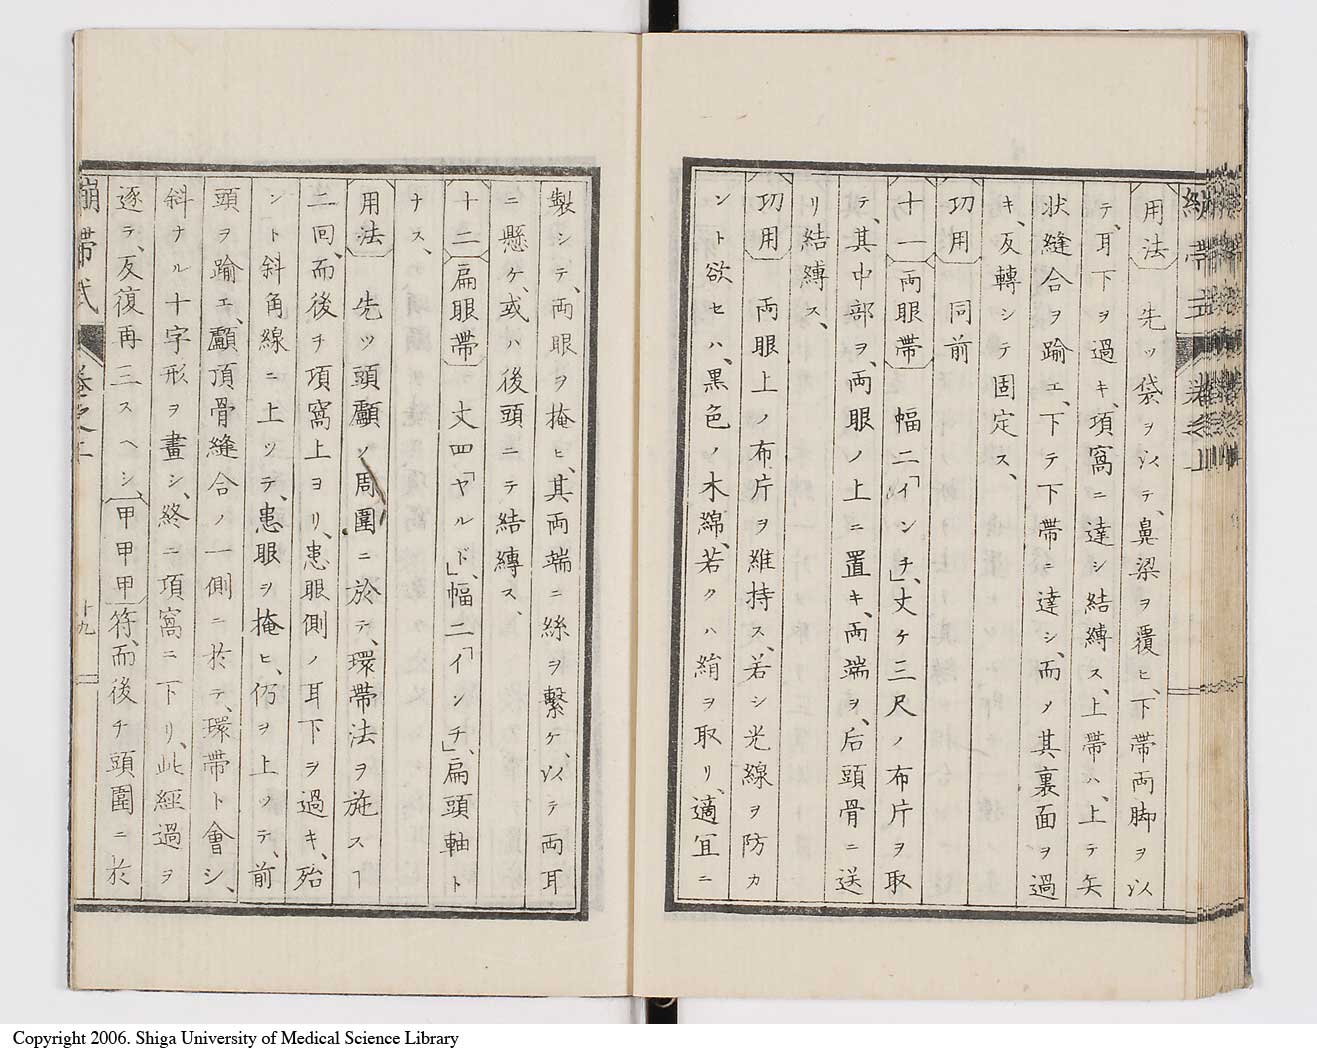 用法 先ッ袋ヲ以テ、鼻梁ヲ覆ヒ、下帶両脚ヲ以
テ、耳下ヲ過キ、項窩ニ達シ結縛ス、上帶ハ、上テ矢
状縫合ヲ踰エ、下テ下帶ニ達シ、而メ其裏面ヲ過
キ、反轉シテ固定ス、
功用 同前
十一 両眼帶 幅二「インチ」、丈ケ三尺ノ布片ヲ取
テ、其中部ヲ、両眼ノ上ニ置キ、両端ヲ、后頭骨ニ送
リ結縛ス、
功用 両眼上ノ布片ヲ維持ス、若シ光線ヲ防カ
ント欲セハ、黒色ノ木綿、若クハ絹ヲ取リ、適宜ニ
製シテ、両眼ヲ掩ヒ、其両端ニ絲ヲ繋ケ、以テ両耳
ニ懸ケ、或ハ後頭ニテ結縛ス、
十二 扁眼帶 丈四「ヤルド」、幅二「インチ」、扁頭軸ト
ナス、
用法 先ッ頭顱ノ周圍ニ於テ、環帶法ヲ施スヿ
二回、而後チ項窩上ヨリ、患眼側ノ耳下ヲ過キ、殆
ント斜角線ニ上ッテ、患眼ヲ掩ヒ、仍ヲ上ッテ、前
頭ヲ踰エ、顱頂骨縫合ノ一側ニ於テ、環帶ト會シ、
斜ナル十字形ヲ畫シ、終ニ項窩ニ下リ、此經過ヲ
逐テ、反復再三スヘシ 甲甲甲 符、而後チ頭圍ニ於
繃帶式 卷之上 十九